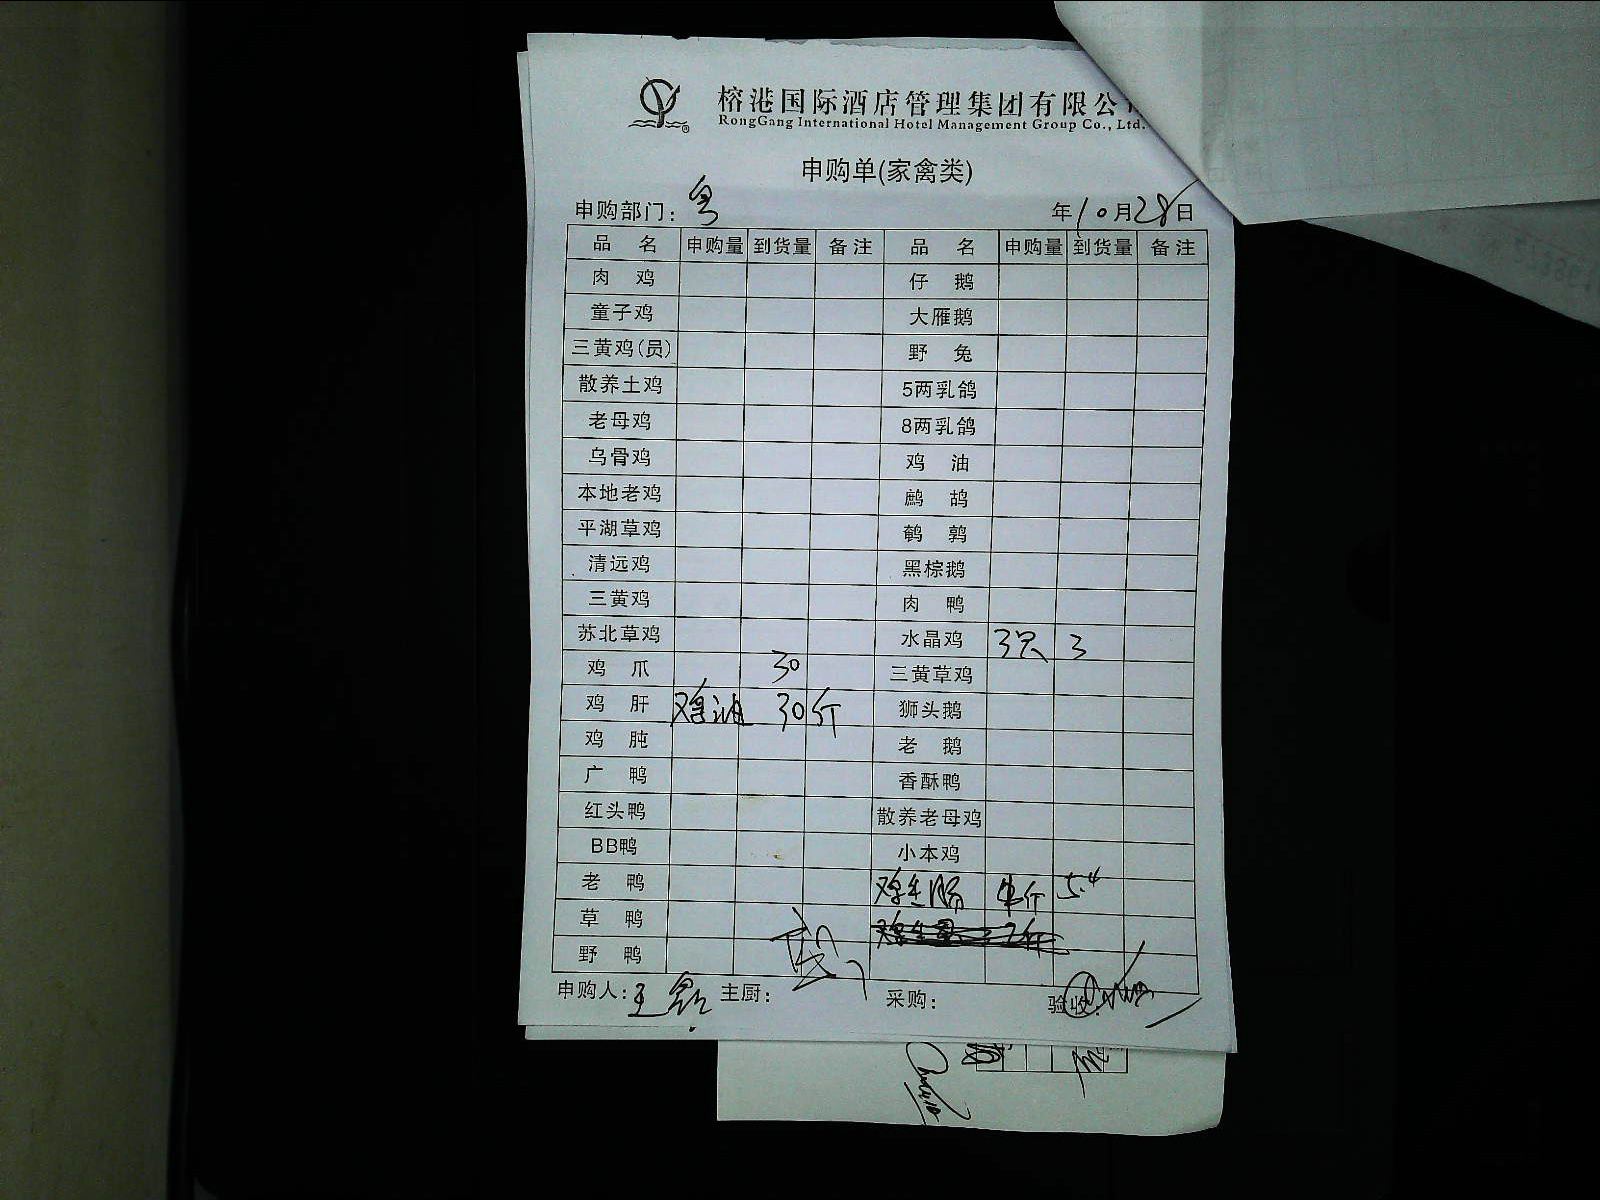 榕港国际酒店管理集团有限公
RongGang International Hotel Management Group Co., Ltd.
申购单(家禽类)
申购部门: 粤 年10月28日
品 名 申购量 到货量 备注 品 名 申购量 到货量 备注
肉 鸡 仔 鹅
童子鸡 大雁鹅
三黄鸡(员) 野 兔
散养土鸡 5两乳鸽
老母鸡 8两乳鸽
乌骨鸡 鸡 油
本地老鸡 鹧 鸪
平湖草鸡 鹌 鹑
清远鸡 黑棕鹅
三黄鸡 肉 鸭
苏北草鸡 水晶鸡 3只 3
鸡 爪 30 三黄草鸡
鸡 肝 鸡油 30斤 狮头鹅
鸡 肫 老 鹅
广 鸭 香酥鸭
红头鸭 散养老母鸡
BB鸭 小本鸡
老 鸭 5.4
草 鸭
野 鸭
申购人: 王 主厨: 采购: 验收: